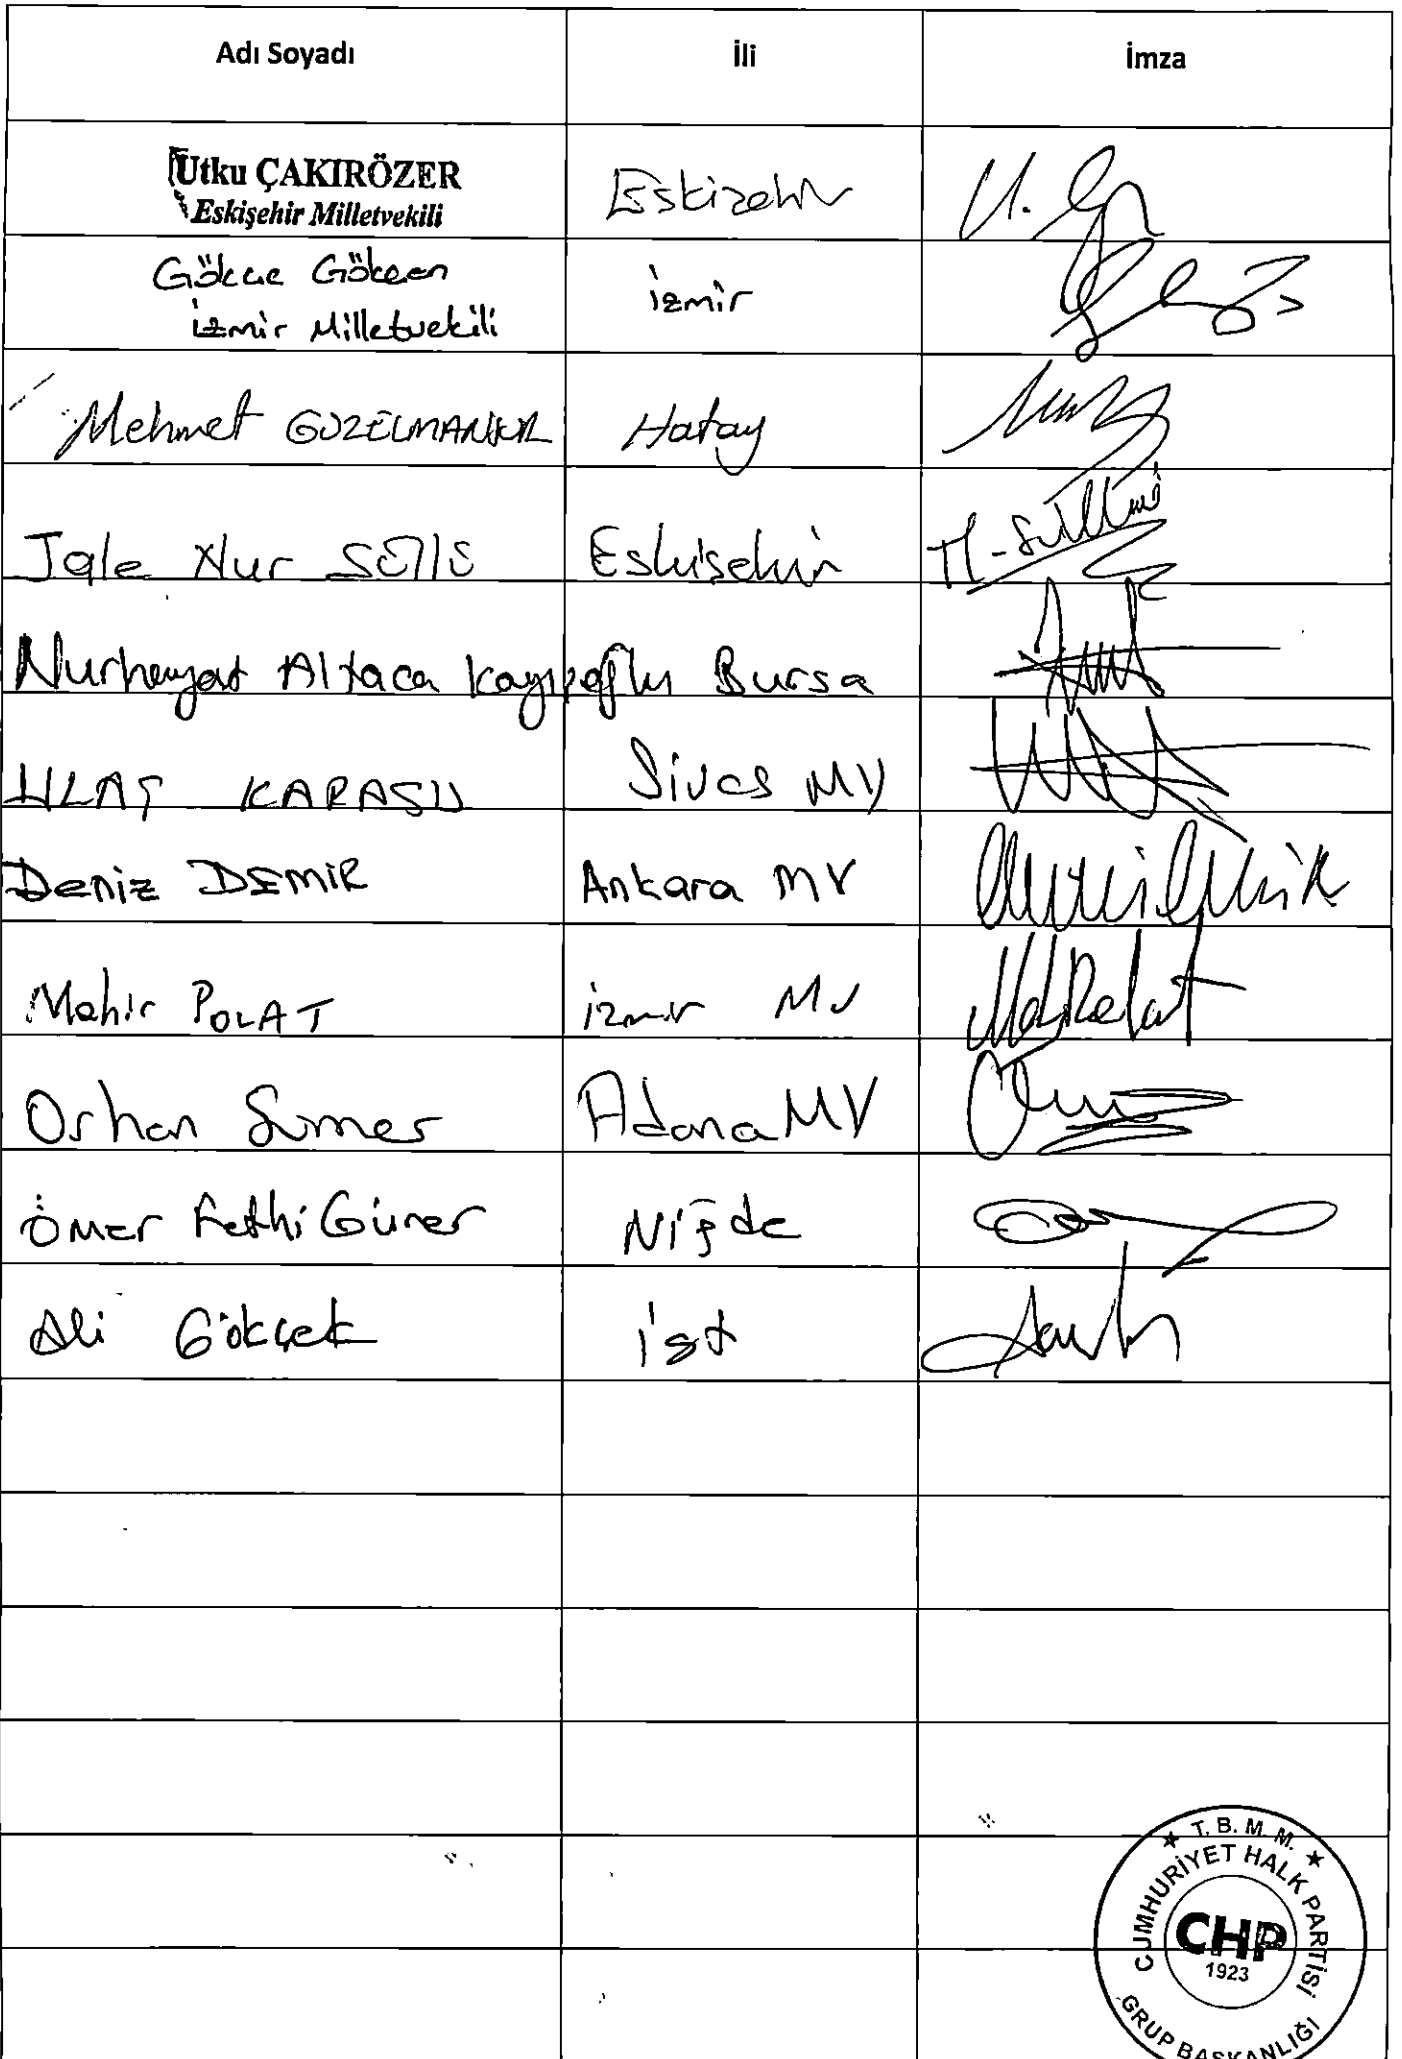 Adı Soyadı İli İmza
Utku ÇAKIRÖZER Eskişehir U.
Eskişehir Milletvekili
Gökçe Gökçen İzmir
İzmir Milletvekili
Mehmet GÜZELMANSUR Hatay
Jale Nur Süllü Eskişehir
Nurhayat Altaca Kayışoğlu Bursa
ULAŞ KARASU Sivas MV
Deniz DEMİR Ankara MV
Mahir POLAT izmir MV
Orhan Sümer Adana MV
Ömer Fethi Gürer Niğde
Ali Gökçek İst
T. B. M. M.
CUMHURİYET HALK PARTİSİ
CHP
1923
GRUP BAŞKANLIĞI